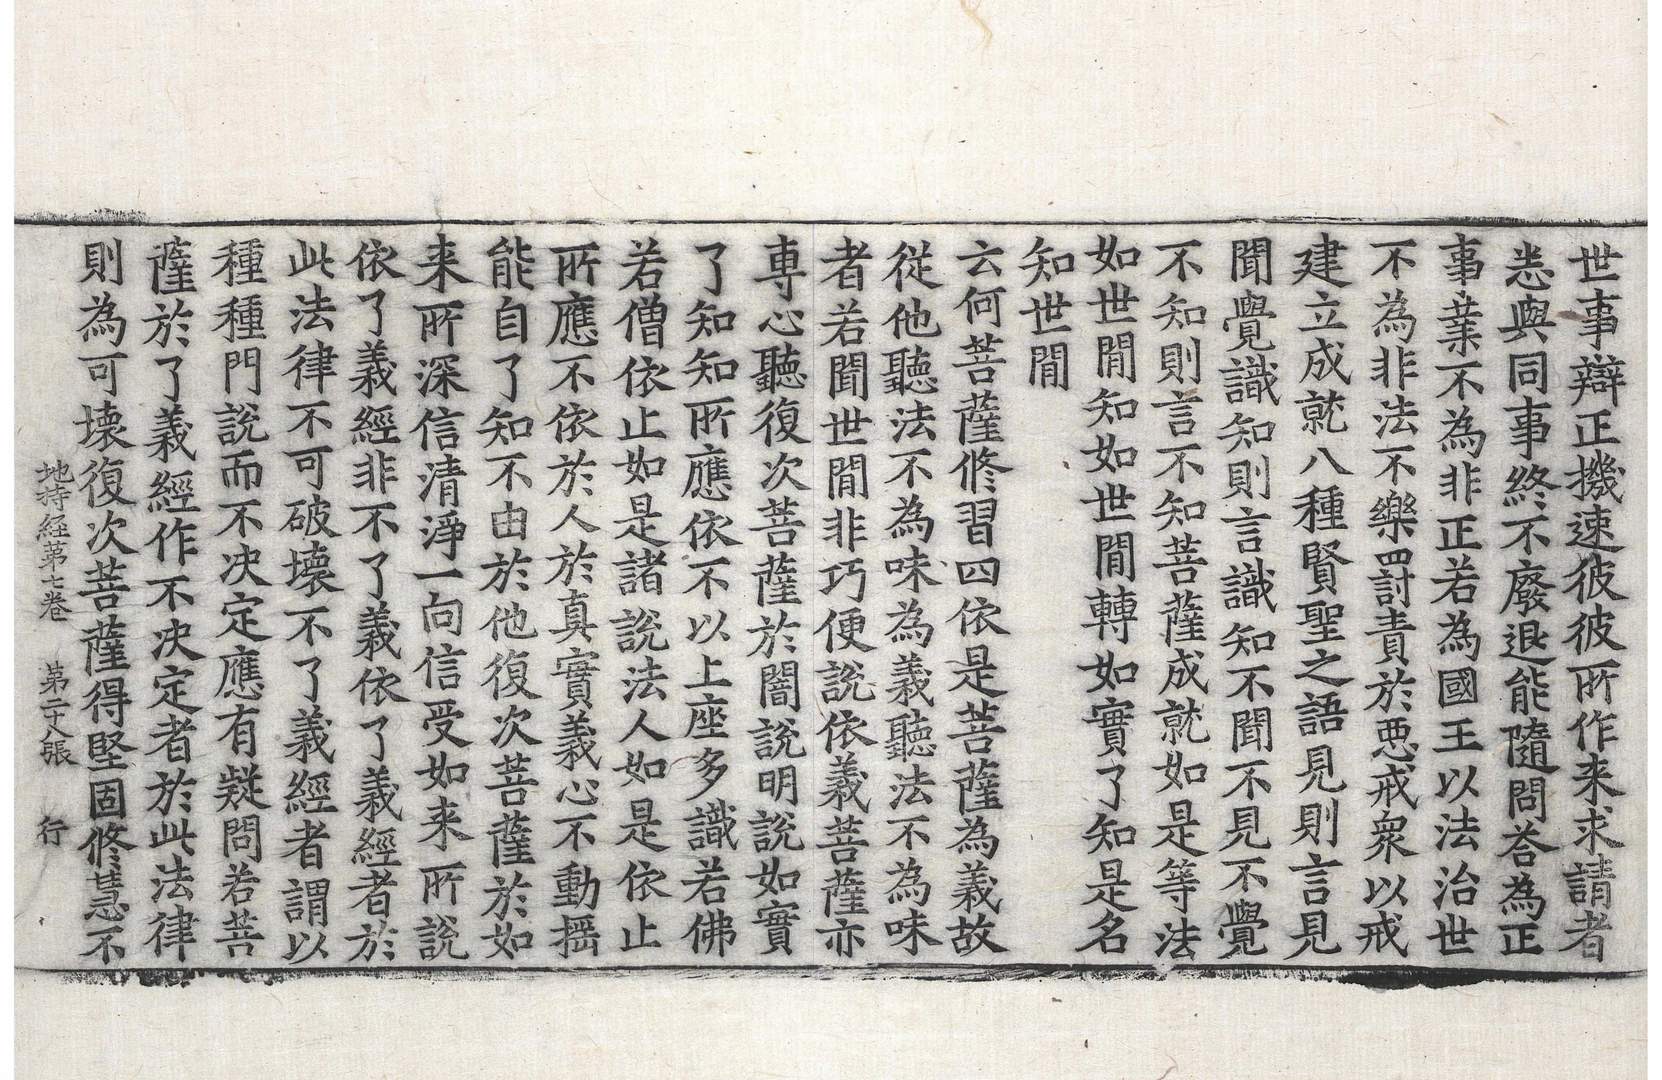 世事辯正機速彼彼所作来求請者
悉與同事終不廢退能隨問荅為正
事業不為非正若為國王以法治世
不為非法不樂罰討責於惡戒衆以戒
建立成就八種賢聖之語見則言見
聞覺識知則言識知不聞不見不覺
不知則言不知菩薩成就如是等法
如世間知如世間轉如實了知是名
知世間
云何菩薩修習四依是菩薩為義故
從他聽法不為味為義聽法不為味
者若聞世間非巧便說依義菩薩亦
專心聽復次菩薩於闇說明說如實
了知知所應依不以上座多識若佛
若僧依止如是諸說法人如是依止
所應不依於人於真實義心不動摇
能自了知不由於他復次菩薩於如
来所深信清淨一向信受如来所說
依了義經非不了義依了義經者於
此法律不可破壞不了義經者謂以
種種門說而不决定應有疑問若菩
薩於了義經作不决定者於此法律
則為可壞復次菩薩得堅固修慧不
地持經苐七卷　第二十八張　行